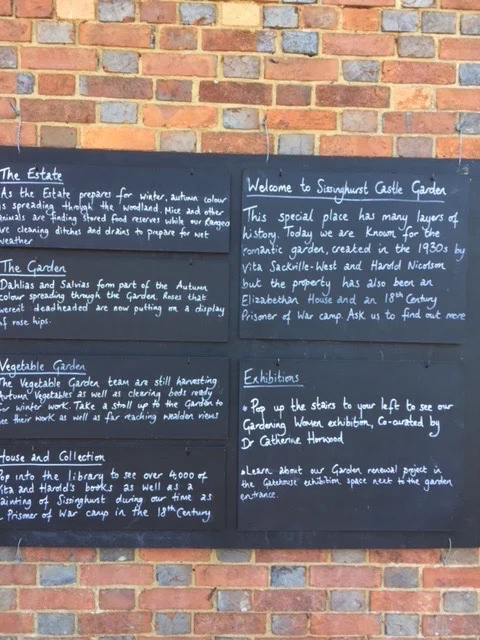 The Estate
As the Estate prepares for winter, autumn colour
is spreading through the woodland. Mice and other
animals are finding stored food reserves while our Rangers
are cleaning ditches and drains to prepare for wet
weather
The Garden
Dahlias and Salvias form part of the Autumn
colour spreading through the Garden. Roses that
weren't deadheaded are now putting on a display
of rose hips.
Vegetable Garden
The Vegetable Garden team are still harvesting
Autumn Vegetables as well as clearing beds ready
for winter work. Take a stroll up to the Garden to
see their work as well as far reaching wealden views
House and Collection
Pop into the library to see over 4,000 of
Vita and Harold's books as well as a
painting of Sissinghurst during our time as
a Prisoner of War camp in the 18th Century
Welcome to Sissinghurst Castle Garden
This special place has many layers of
history. Today we are known for the
romantic garden, created in the 1930s by
Vita Sackville-West and Harold Nicolson
but the property has also been an
Elizabethan House and an 18th Century
Prisoner of War camp. Ask us to find out more
Exhibitions
• Pop up the stairs to your left to see our
Gardening Women exhibition, co-curated by
Dr Catherine Horwood
• Learn about our Garden renewal project in
the Gatehouse exhibition space next to the garden
entrance.